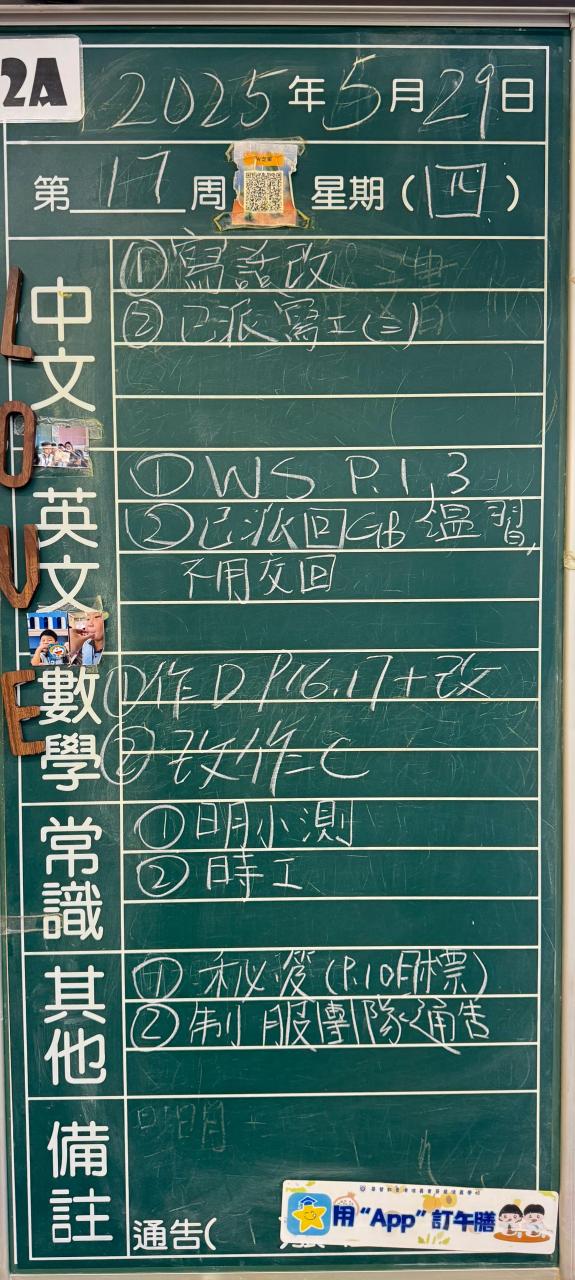 2A
2025年5月29日
第17周 星期(四)
中文
① 寫話改
② 已派寫工(二)
英文
① WS P.1,3
② 已派回GB 溫習,
不用交回
數學
① 作D P16.17+改
② 改作C
常識
① 明小測
② 時工
其他
① 秘笈(P.10目標)
② 制服團隊通告
備註
通告(
用“App”訂午膳
LOVE